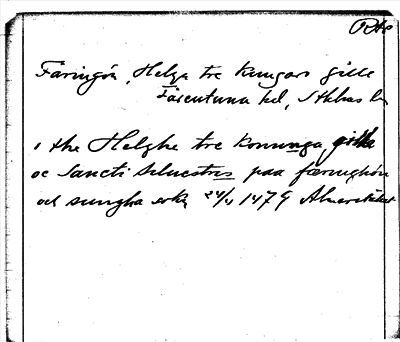 Färingön, Helga tre kungars gille
Färentuna hd, Sthlms län
i the Helghe tre konunga gille
oc Sancti siluestris paa færinghön
och sungha 24/4 1479